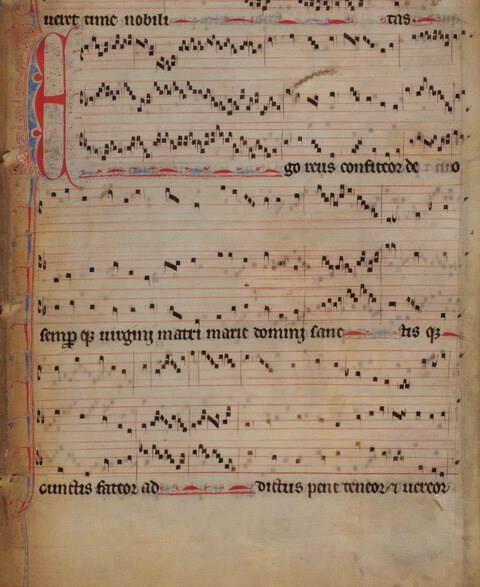 ueret time nobili tas.
Ego reus confiteor de o
semp qz uirgini matri marie domini sanc tis qz
cunctis fateor ad dictus pene teneor & uereor